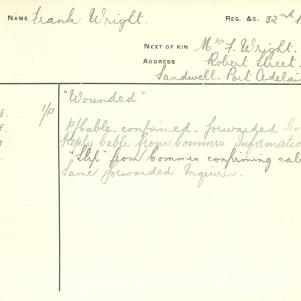 NAME Frank Wright. REG. &C. 32nd
NEXT OF KIN Mrs F. Wright.
ADDRESS Robert Street.
Sandwell. Port Adelai
1/p "Wounded"
P/Cable. confirmed. forwarded
Reply Cable from Commrs. Informatio
"Slip" from Commrs confirming cab
Same forwarded Inquirer.